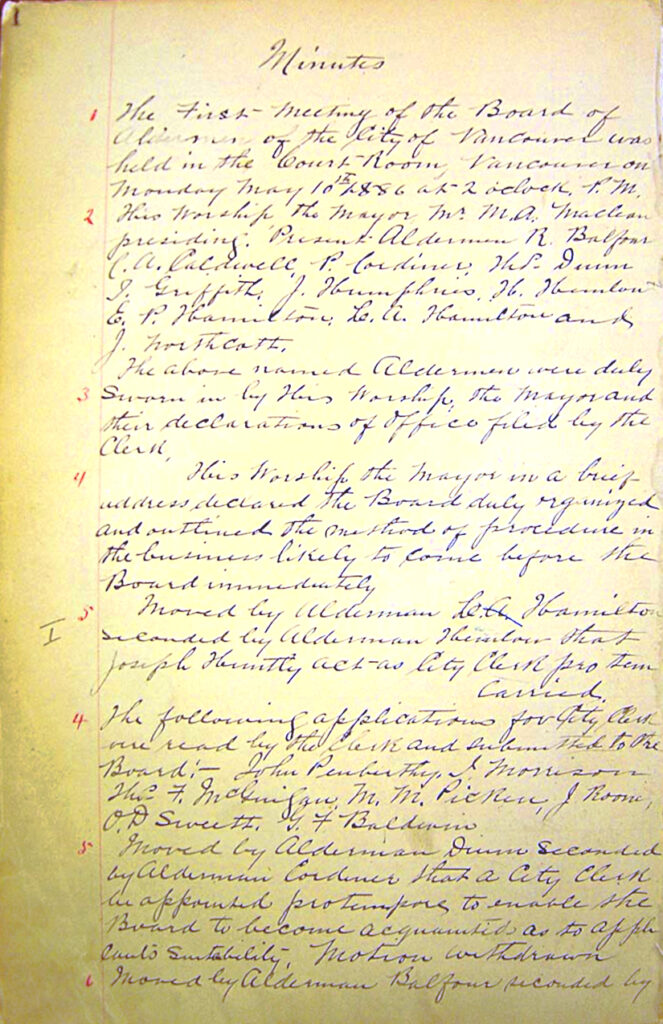 1
Minutes
1 The First Meeting of the Board of
Aldermen of the City of Vancouver was
held in the Court Room, Vancouver on
Monday May 10TH 1886 at 2 oclock, P.M.
2 His Worship the Mayor Mr. M.A. Maclean
presiding. Present Aldermen R. Balfour
C. A. Caldwell, P. Cordiner, Thos Dunn
J. Griffith, J. Humphries, H. Hemlow
E. P. Hamilton, L. A. Hamilton and
J. Northcott.
The above named Aldermen were duly
3 Sworn in by His Worship, the Mayor and
their declarations of Office filed by the
Clerk,
4 His Worship the Mayor in a brief
address declared the Board duly orginized
and outlined the method of procedure in
the business likely to come before the
Board immediately
5 Moved by Alderman L.A. Hamilton
I seconded by Alderman Hemlow that
Joseph Huntly act as City Clerk pro tem
Carried.
4 The following applications for City Clerk
were read by the Clerk and submitted to the
Board:- John Penberthy, J. Morrison
Thos F. McGuigan, M. M. Picken, J Roone,
O.D Sweett. G. F Baldwin
5 Moved by Alderman Dunn seconded
by Alderman Cordiner that a City Clerk
be appointed protempore to enable the
Board to become acquainted as to appli
cants Suitability, Motion withdrawn
6 Moved by Alderman Balfour seconded by